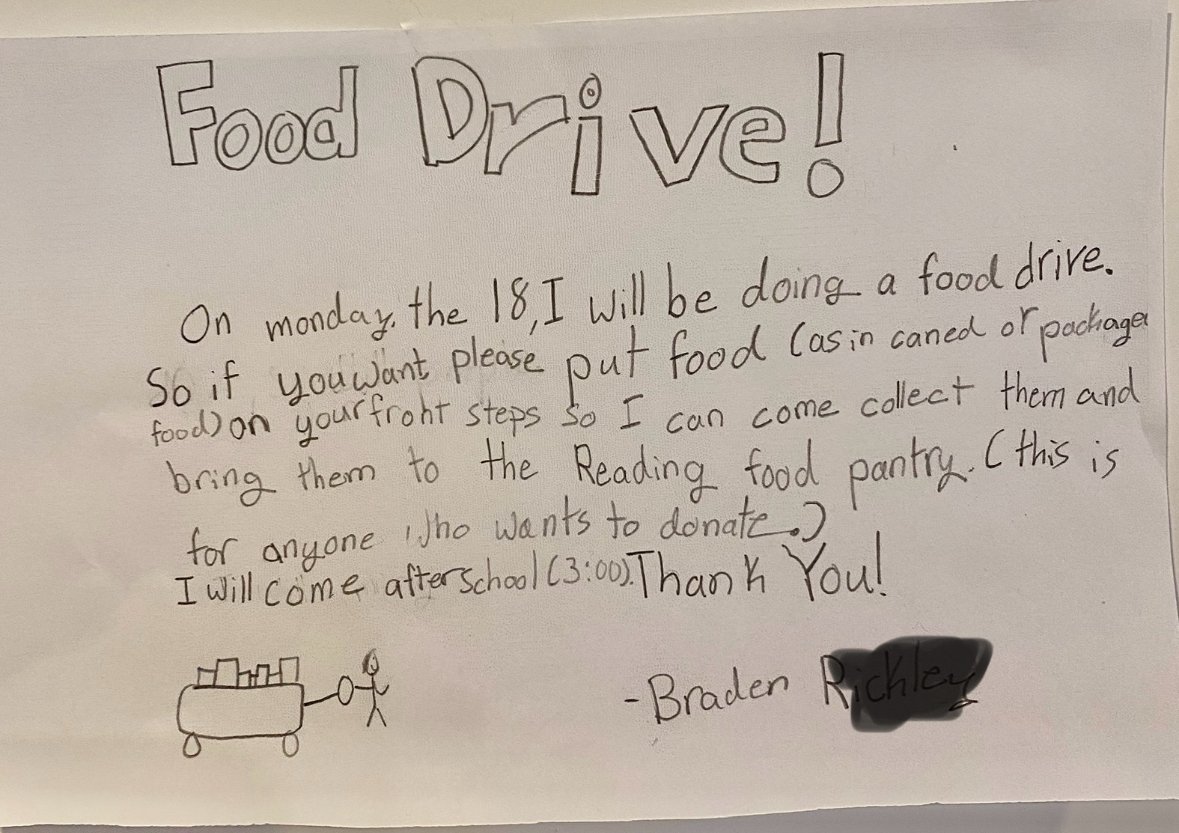 Food Drive!
On monday, the 18, I will be doing a food drive.
So if you want please put food (as in caned or package
food) on your front steps so I can come collect them and
bring them to the Reading food pantry. (this is
for anyone who wants to donate.)
I will come after school (3:00). Thank You!
-Braden